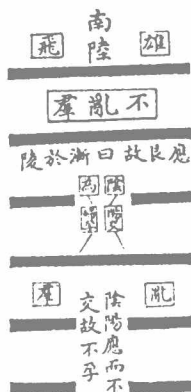 南陸
雄
飛
不亂羣
應艮故曰漸於陵
陰
為
亂
羣
陰陽應而不
交故不孕